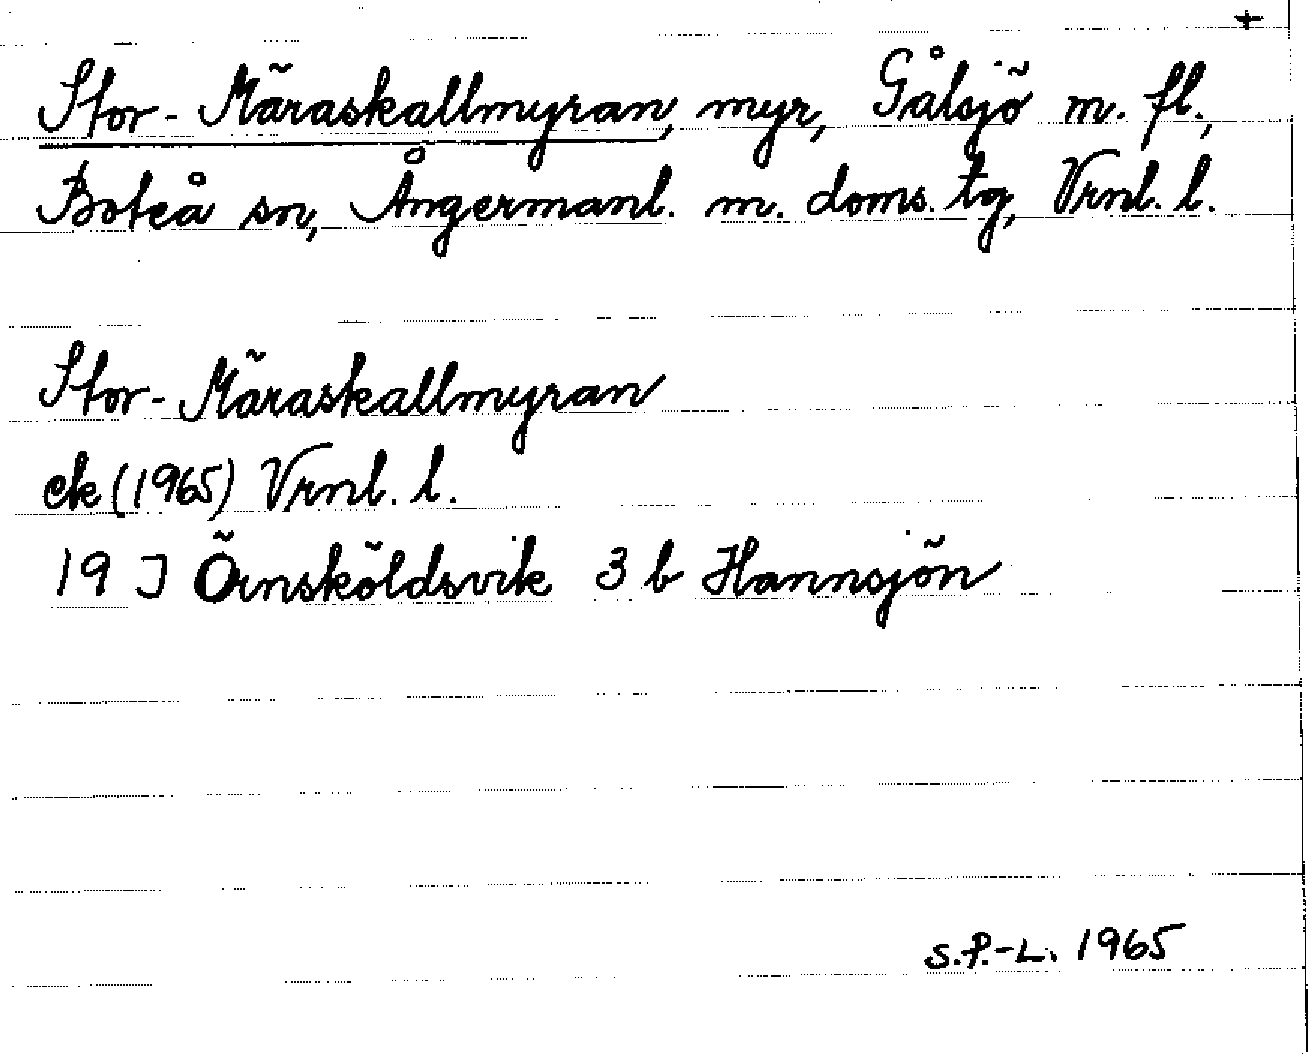 +
Stor-Märaskallmyran, myr, Gålsjö m. fl.,
Boteå sn, Ångermanl. m. doms. tg, Vrnl. l.
Stor-Märaskallmyran
ek (1965) Vrnl. l.
19 J Örnsköldsvik 3 b Hannsjön
S.P.-L. 1965